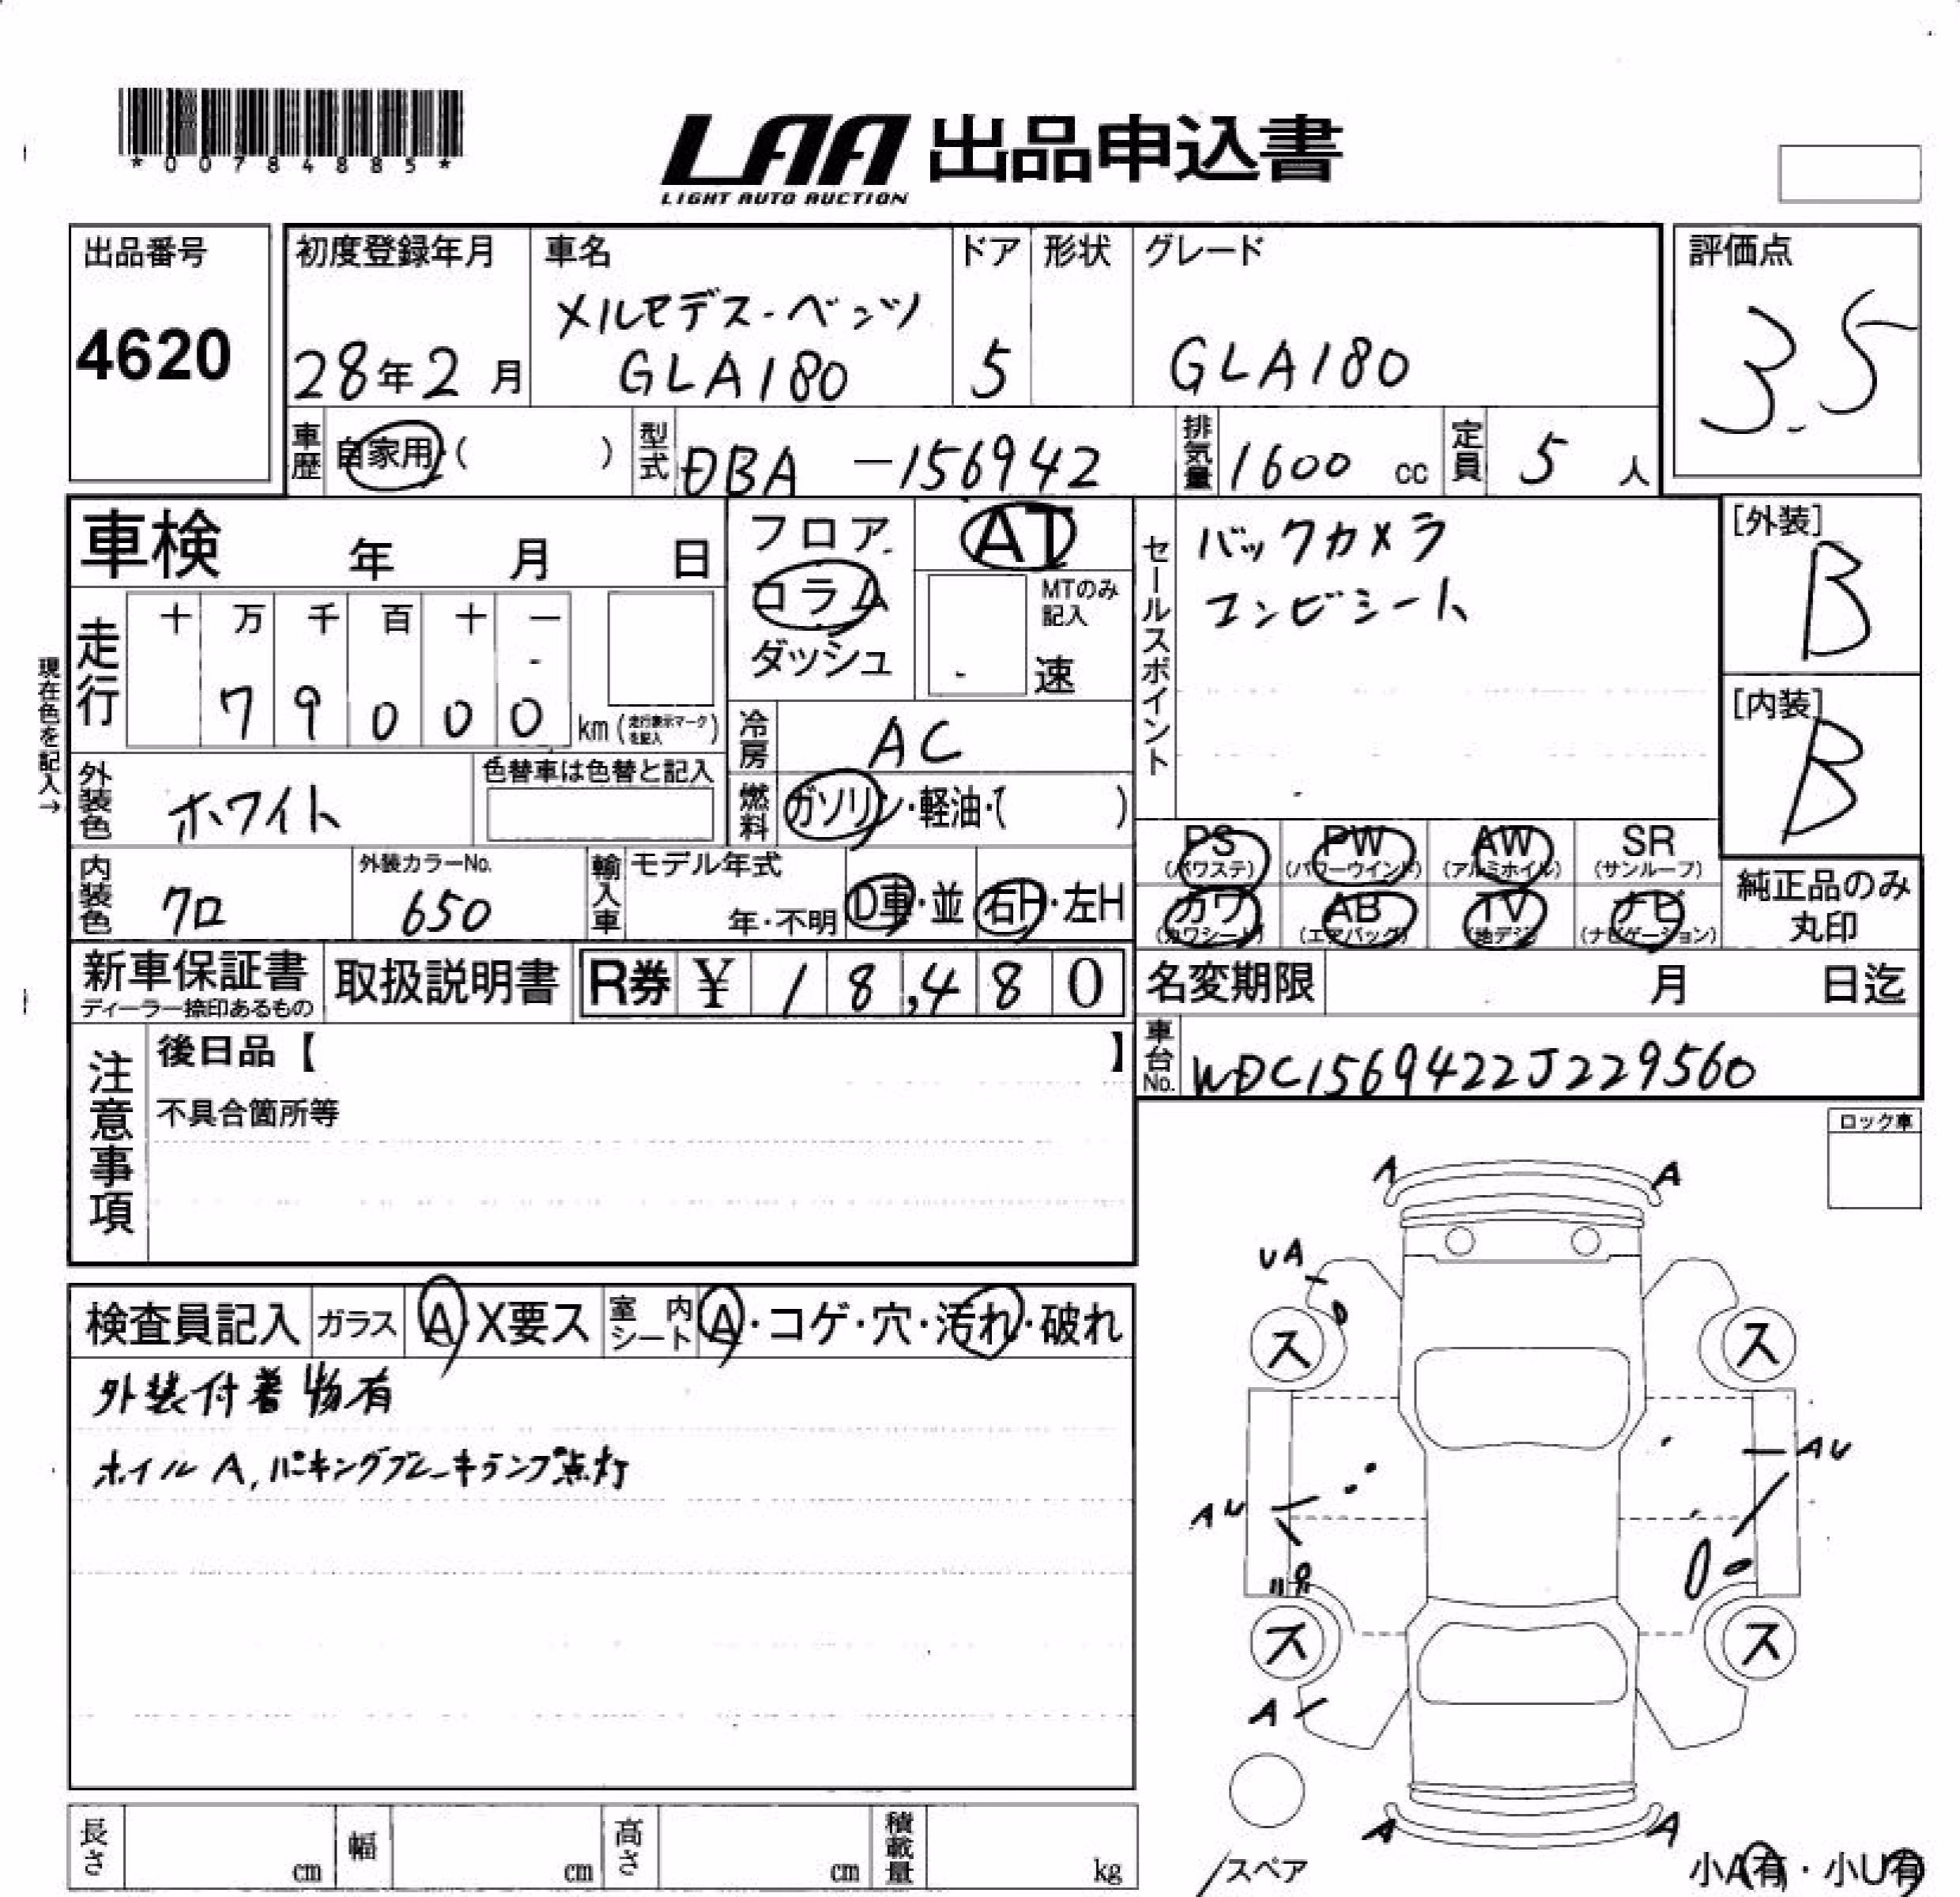 *00784885*
LAA 出品申込書
LIGHT AUTO AUCTION
出品番号
4620
初度登録年月
28年2月
車名
メルセデス-ベンツ
GLA180
ドア
5
形状
グレード
GLA180
評価点
3.5
車歴 自家用・( )
型式 DBA -156942
排気量 1600 cc
定員 5 人
車検 年 月 日
フロア
コラム
ダッシュ
AT
MTのみ
記入
速
セールスポイント
バックカメラ
コンビシート
[外装]
B
[内装]
B
現在色を記入→
走行
十 万 千 百 十 一
7 9 0 0 0 km (走行表示マークを記入)
冷房 AC
外装色 ホワイト
色替車は色替と記入
燃料 ガソリン・軽油・( )
PS PW AW SR
(パワステ) (パワーウインド) (アルミホイル) (サンルーフ)
カワ AB TV ナビ
(カワシート) (エアバッグ) (地デジ) (ナビゲーション)
純正品のみ
丸印
内装色 クロ
外装カラーNo.
650
輸入車
モデル年式
年・不明
D車・並
右H・左H
新車保証書
ディーラー捺印あるもの
取扱説明書
R券 ¥ 18,480
名変期限 月 日迄
車台No. WDC1569422J229560
注意事項
後日品【 】
不具合箇所等
ロック車
検査員記入 ガラス A・X要ス 室内シート A・コゲ・穴・汚れ・破れ
外装付着物有
ホイルA, パーキングブレーキランプ点灯
A A
UA
ス ス
AU
AU
ス ス
A
A A
/スペア
小A有・小U有
長さ cm 幅 cm 高さ cm 積載量 kg